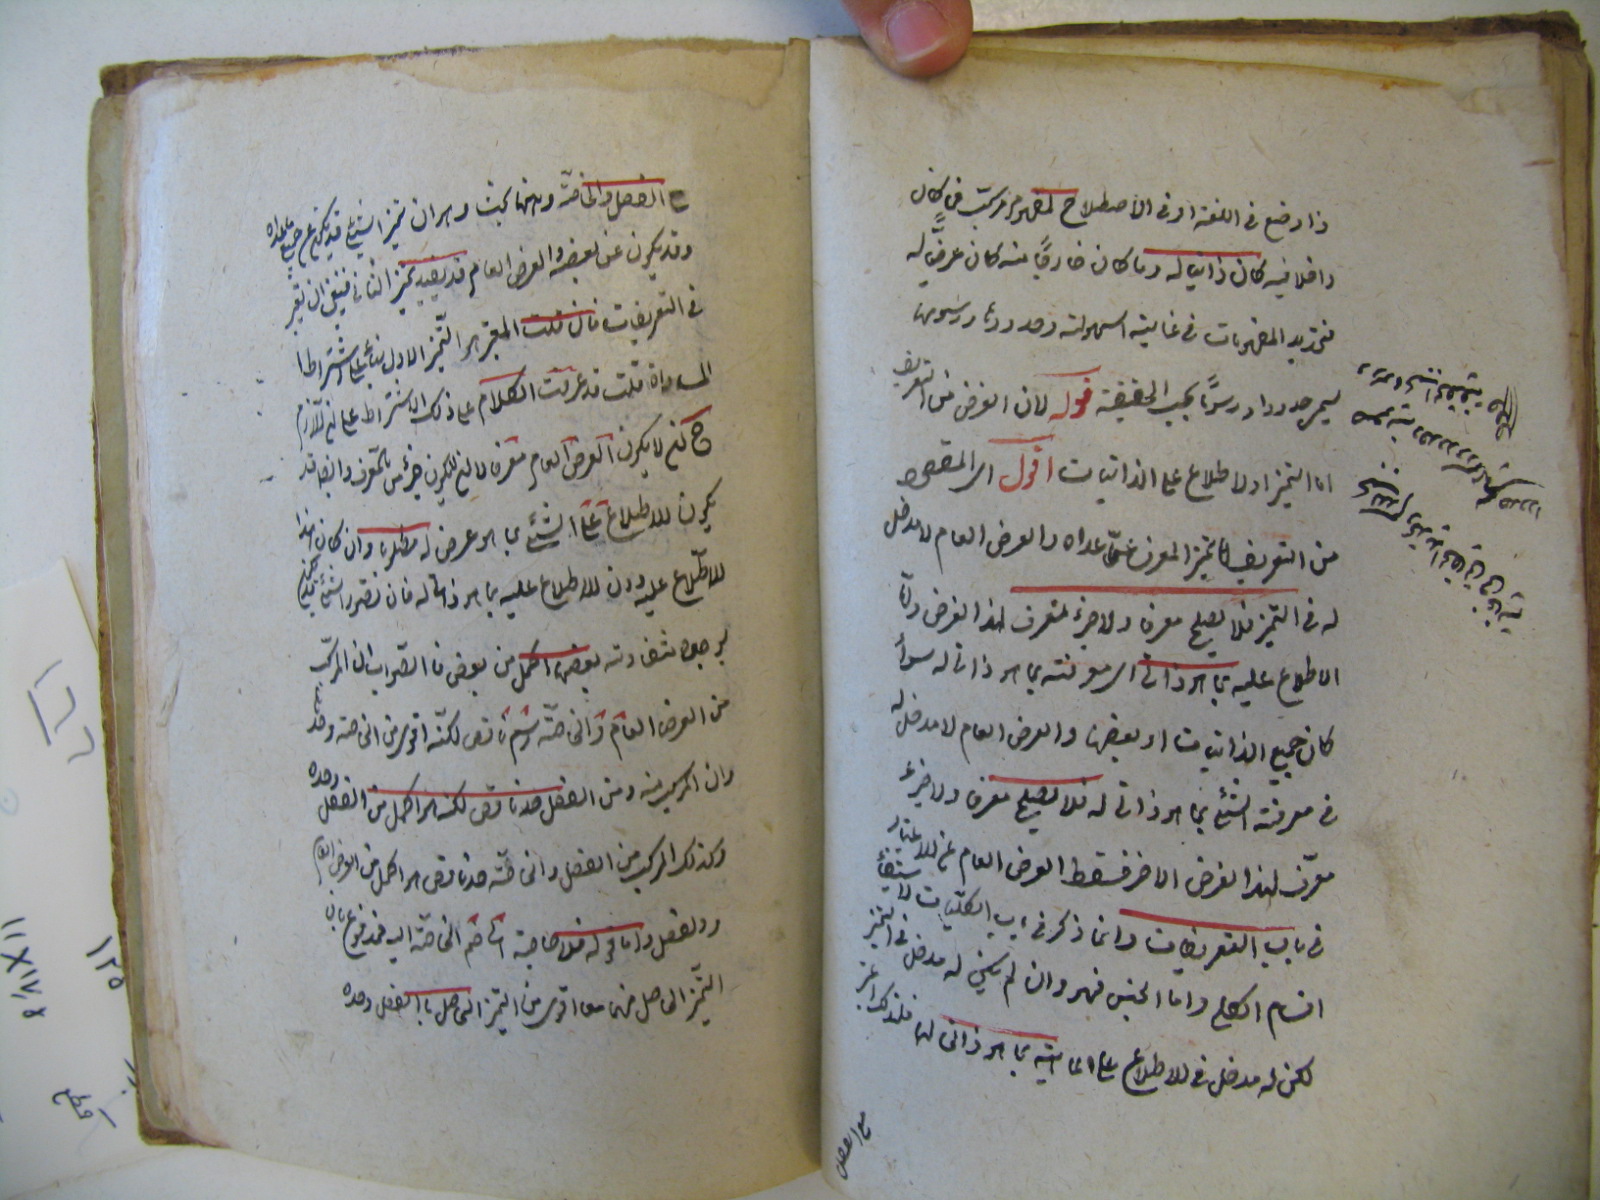 ذا وضع في اللغة او في الاصطلاح لمفهوم مركب فما كان
داخلا فيه كان ذاتيا له وما كان خارجا عنه كان عرضيا له
فتحديد المفهومات في غاية السهولة وحدودها ورسومها
يسمى حدودا ورسوما بحسب الحقيقة قوله لان الغرض من التعريف
اما التميز او الاطلاع على الذاتيات اقول اى المقصود
من التعريف اما تميز المعرف عما عداه والعرض العام لا مدخل
له في التميز فلا يصلح معرفا ولا جزء معرف لهذا الغرض واما
الاطلاع عليه بما هو ذاتى اى معرفته بما هو ذاتي له سواء
كان جميع الذاتيات او بعضها والعرض العام لا مدخل له
في معرفة الشئ بما هو ذاتي له فلا يصلح معرفا ولا جزء
معرف لهذا الغرض الاخر فسقط العرض العام عن الاعتبار
في باب التعريفات وانما ذكر في باب الكليات لاستيفاء
اقسام الكلي واما الجنس فهو وان لم يكن له مدخل في التميز
لكن له مدخل في الاطلاع على الماهية بما هو ذاتى لها فلذلك اعتبر
مع الفصل
ح الفصل والخاصة وههنا بحث وهو ان تميز الشئ قد يكون عن جميع ما عداه
وقد يكون عن بعضه والعرض العام قد يفيد تميز الثاني فينبغى ان يعتبر
في التعريفات فان قلت المعتبر هو التميز الاول بناء على اشتراط
المساواة قلت قد عرفت الكلام على ذلك الاشتراط على انه لا يلزم
ح كونه لا يكون العرض العام معرفا لا انه لا يكون جزء من المعرف وايضا قد
يكون الاطلاع على الشئ بما هو عرض له مطلوبا وان كان هذا
الاطلاع عليه دون الاطلاع عليه بما هو ذاتى له فان تصور الشئ قد يكون
بوجوه متفاوتة بعضها اكمل من بعض فالصواب ان المركب
من العرض العام والخاصة رسم ناقص لكنه اقوى من الخاصة وحدها
وان المركب منه ومن الفصل حد ناقص لكنه هو اكمل من الفصل وحده
وكذلك المركب من الفصل والخاصة حد ناقص هو اكمل من العرض العام
والفصل واما قوله فلا حاجة الى ضم الخاصة اليه فمدفوع بان
التميز الحاصل منهما معا اقوى من التميز الحاصل بالفصل وحده